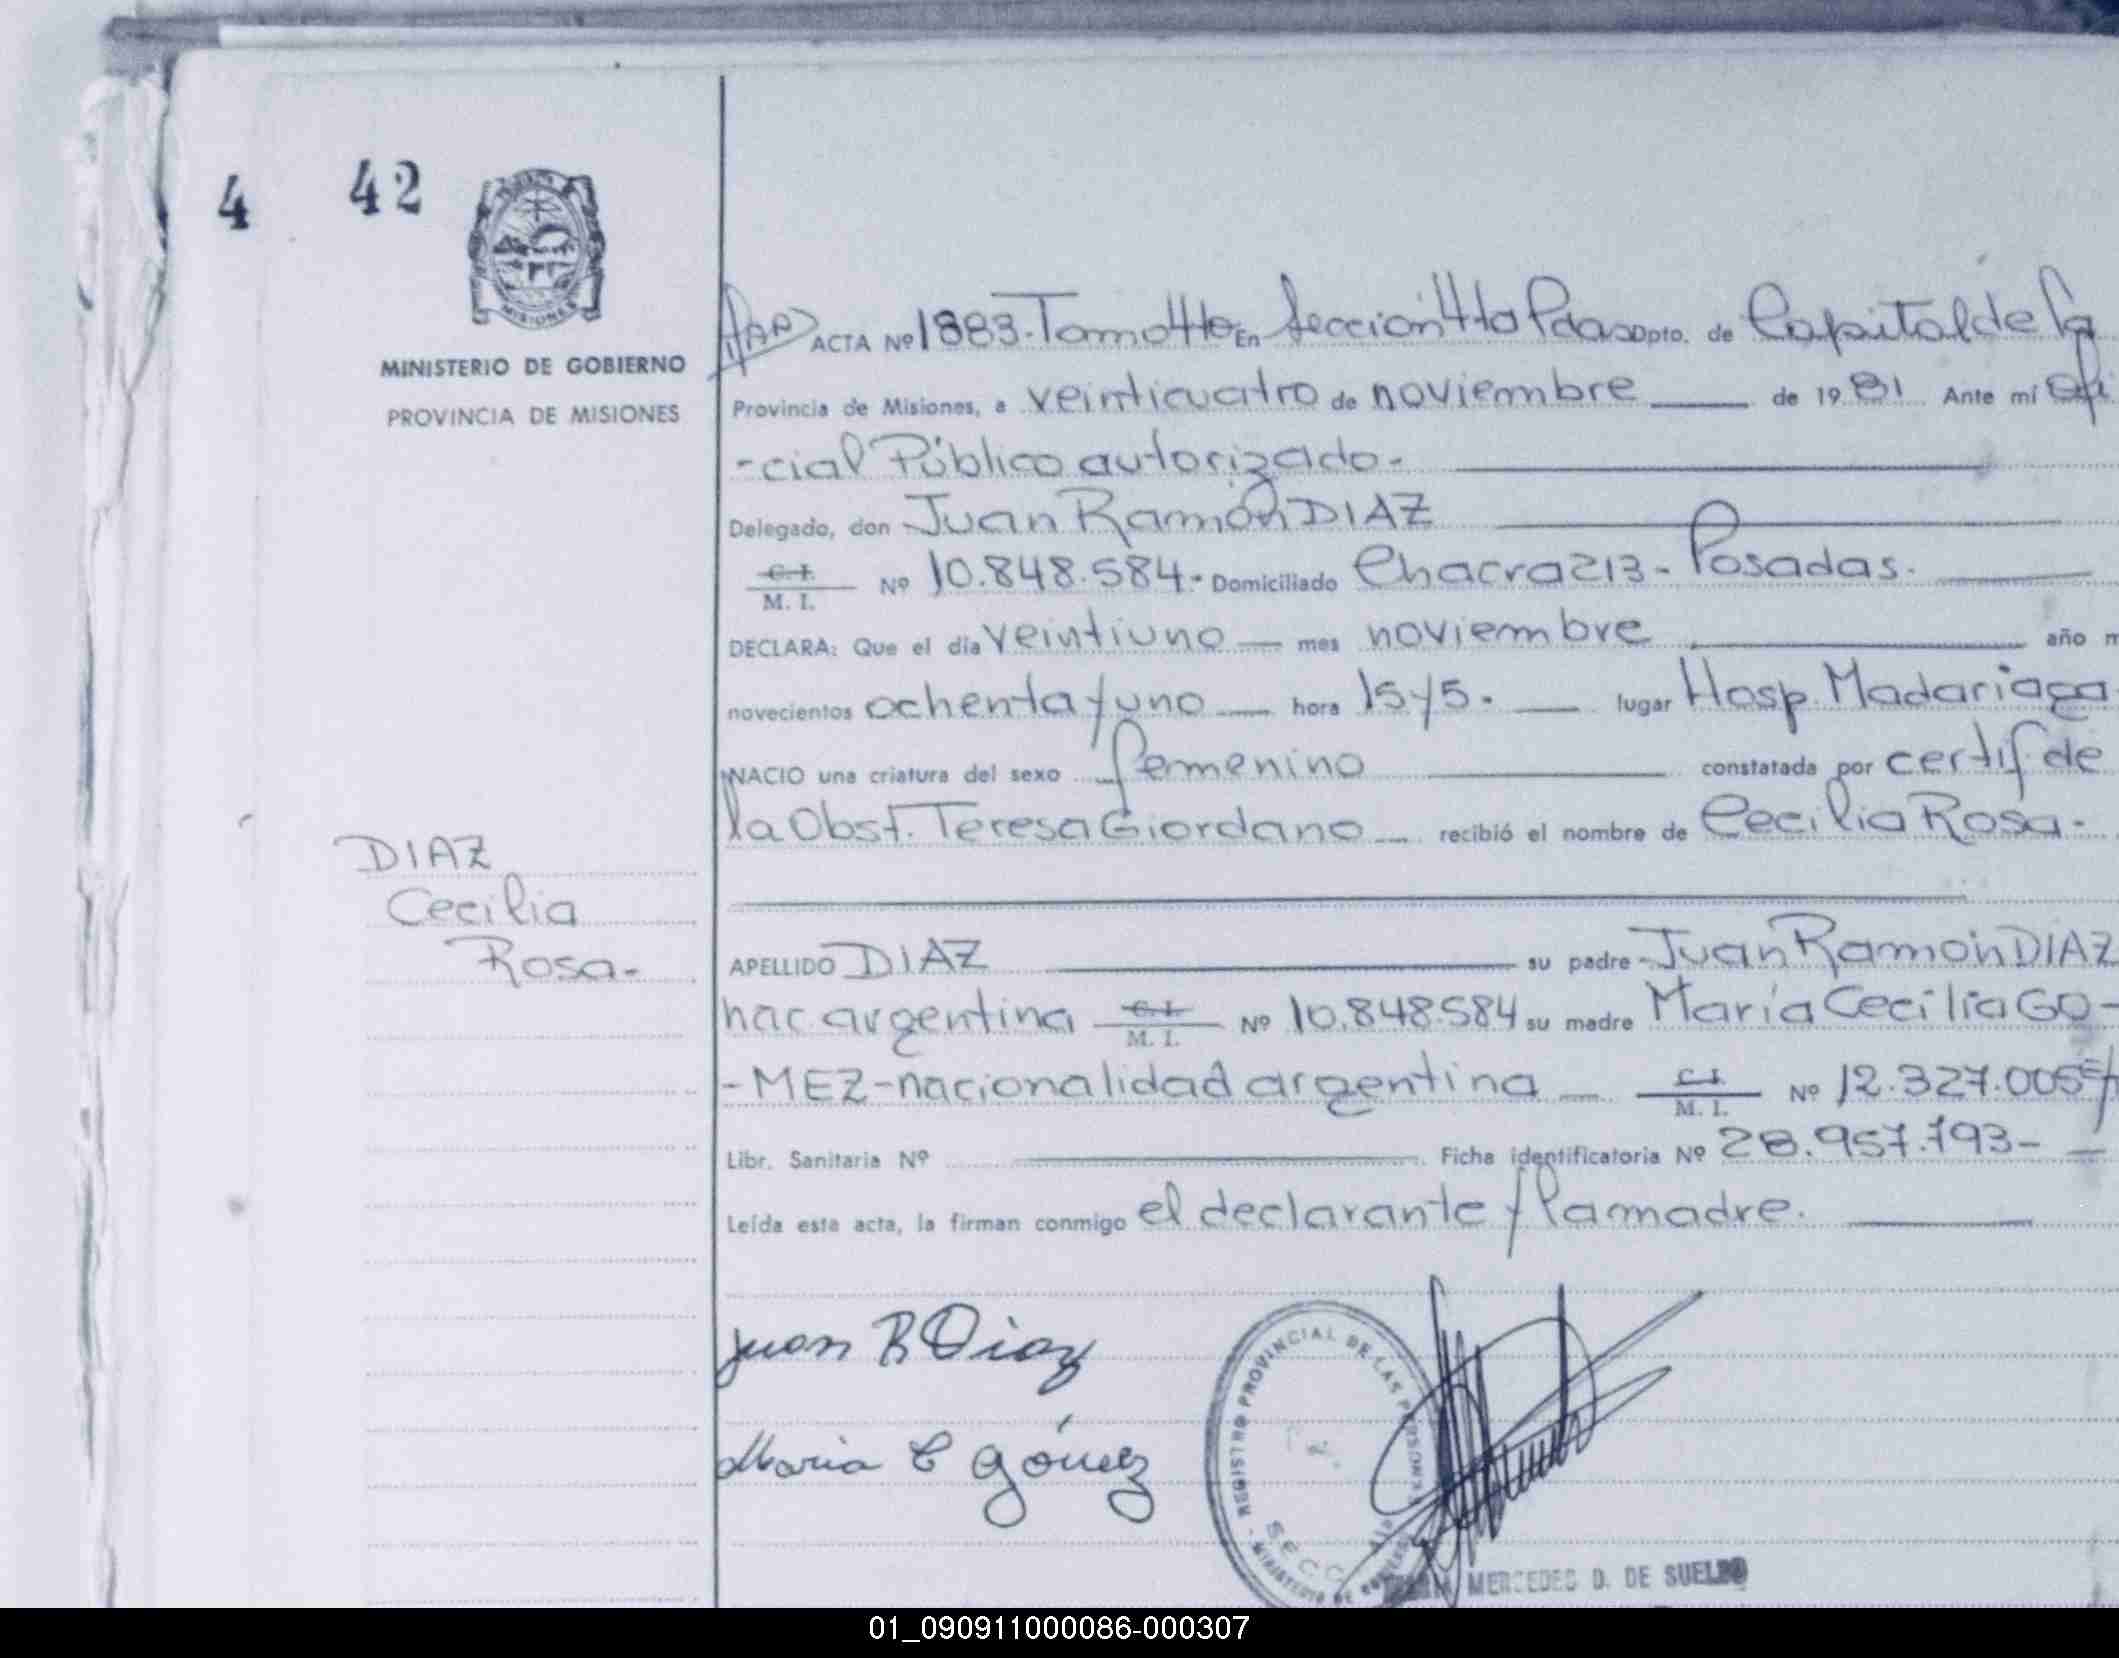 4 42
MISIONES
MINISTERIO DE GOBIERNO
PROVINCIA DE MISIONES
DIAZ
Cecilia
Rosa-
ACTA Nº 1883-Tomo 4to En Sección 4ta Pdas Dpto. de Capital de la
Provincia de Misiones, a veinticuatro de noviembre de 1981 Ante mí Ofi
-cial Público autorizado-
Delegado, don Juan Ramón DIAZ
C. I.
M. I. Nº 10.848.584.- Domiciliado Chacra 213- Posadas.
DECLARA: Que el día veintiuno mes noviembre año m
novecientos ochenta y uno hora 15 y 5. lugar Hosp. Madariaga.
NACIO una criatura del sexo femenino constatada por certif. de
la Obst. Teresa Giordano recibió el nombre de Cecilia Rosa-
APELLIDO DIAZ su padre Juan Ramón DIAZ
nac. argentina C. I.
M. I. Nº 10.848.584 su madre María Cecilia GO-
-MEZ-nacionalidad argentina C. I.
M. I. Nº 12.327.005
Libr. Sanitaria Nº Ficha identificatoria Nº 28.957.793-
Leída esta acta, la firman conmigo el declarante y la madre.
Juan R Diaz
Maria C Gómez
REGISTRO PROVINCIAL DE LAS PERSONAS
SECC
MINISTERIO DE
MERCEDES D. DE SUELDO
01_090911000086-000307